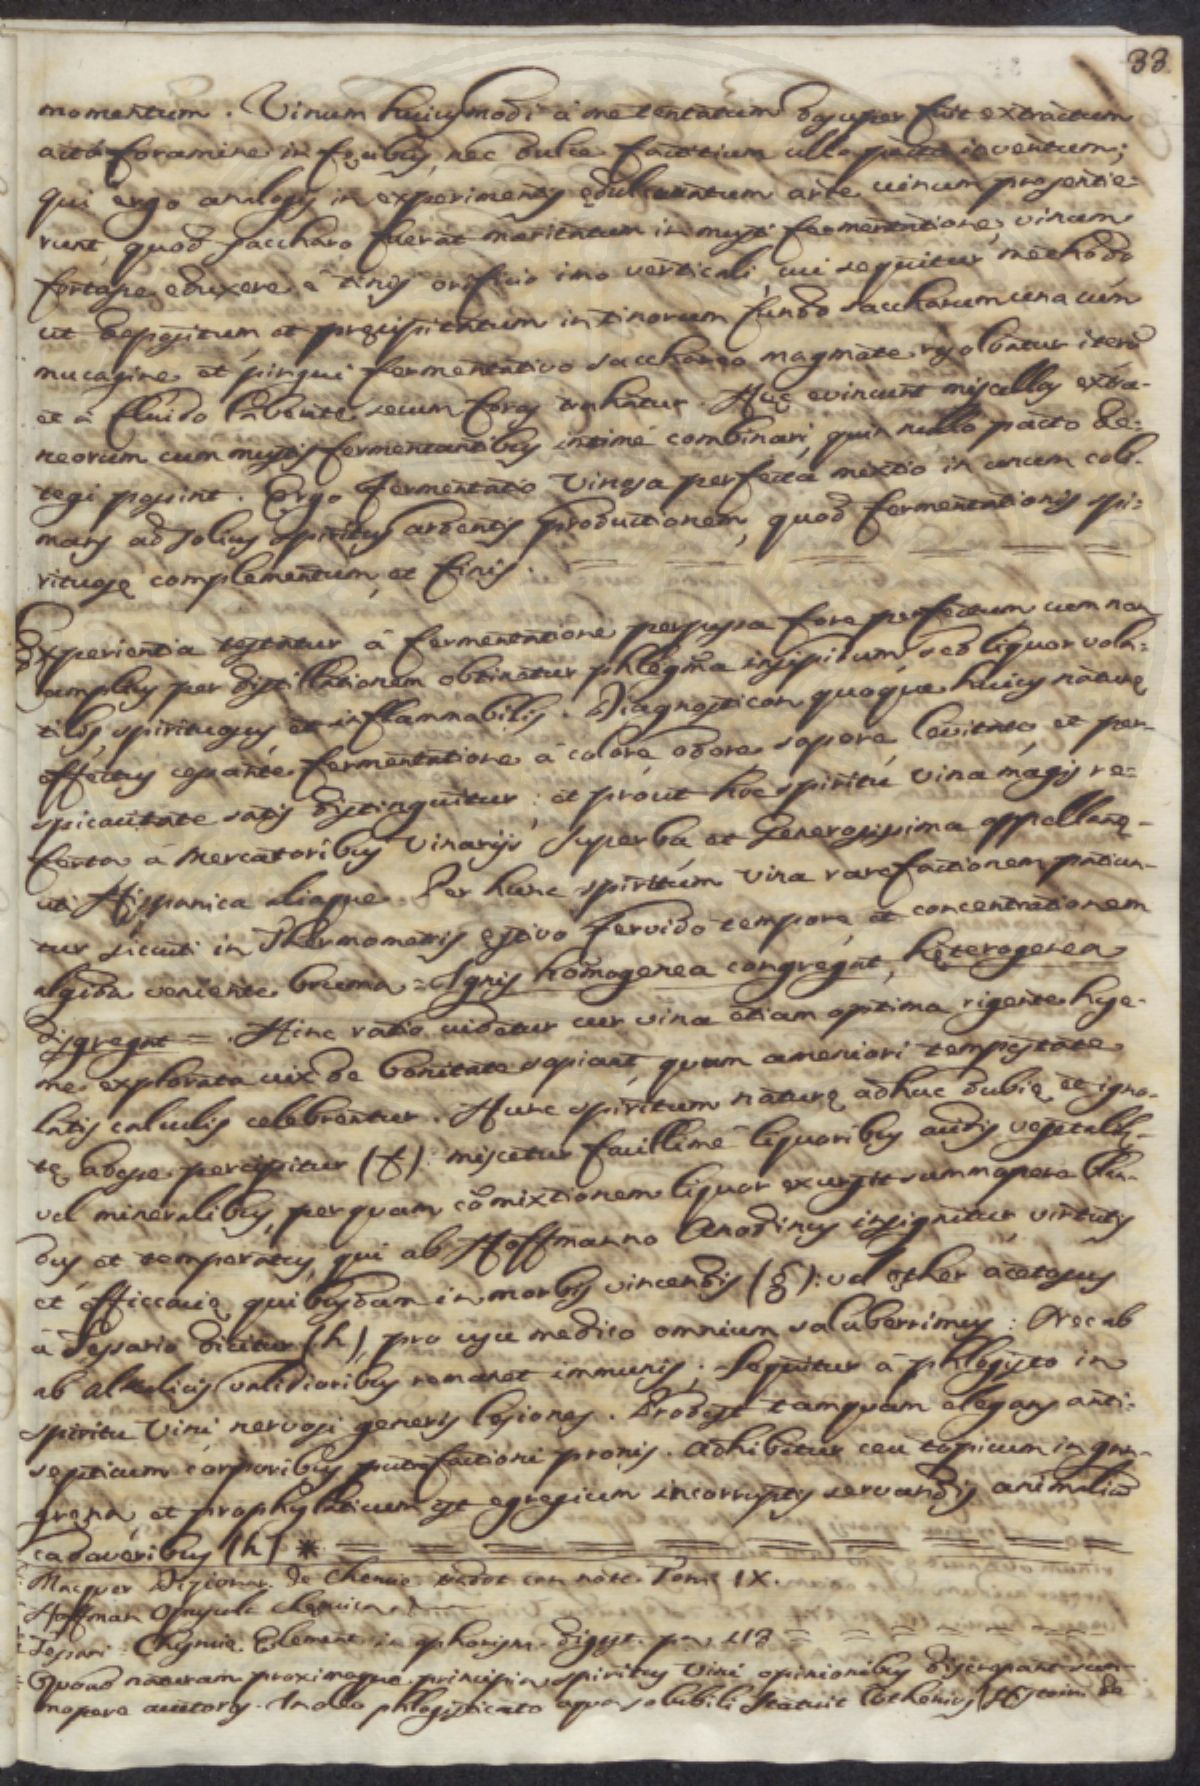 33
momentum. Vinum huiusmodi à me tentatum desuper fuit extractum
acto foramine in fecibus, nec dulce factitium ullo pacto inventum;
qui ergo analysis in experimentis edulcuntum arte vinum prosentie-
runt, quod saccharo fuerat maritatum in musti fermentatione, vinum
fortasse eduxere à tinis orificio imo verticali, cui sequitur methodo
ut depositum, et precipitatum in tinorum fundo saccharum una cum
mucagine et pingui fermentativo sacchareo magmate resolvatur iterum
et à fluido labente secum foras trahatur. Hęc evincunt miscellas extra-
neorum cum mustis fermentantibus intimè combinari, quin nullo pacto de-
tegi possint. Ergo fermentatio Vinosa perfecta mextio in unum coli-
mans ad solius Spiritus ardentis productionem, quod fermentationis spi-
rituosę complementum, et finis.
Experientia testatur à fermentatione perpessa fore perfectum, cum non
amplius per distillationem obtinatur phlegma insipidum, sed liquor vola-
tilis, spirituosus, et inflammabilis. Diagnosticon quoque huius naturę
effectus cessante fermentatione à calore, odore, sapore, levitate, et per-
spicuitate satis distinguitur; et prout hoc spiritu Vina magis re-
ferta à Mercatoribus Vinarijs Superba, et Generosissima appellanę-
uti Hispanica aliaque. Per hunc spiritum Vina rarefactionem patiun-
tur sicuti in Thermometris estivo fervido tempore, et concentrationem
algida veniente bruma = Ignis homogenea congregat, hęterogenea
disgregat =. Hinc ratio videtur cur vina etiam optima rigente hye-
me explorata vix de bonitate sapiant, quam ameniori tempestate
latis calculis celebrantur. Hunc spiritum naturę adhuc dubię, et igno-
tę abesse percipitur (f): miscetur facillime liquoribus acidis vegetalib.
vel mineralibus, per quam commixtionem liquor exurgit summopere blan-
dus et temperatus, qui ab Hoffmanno Anodinus insignitur, virtutis
et efficacię quibusdam in morbis vincendis (g): vel ęther acetosus
à Tessario dicitur (h), pro usu medico omnium saluberrimus: Nec ab
ab alkalicis validioribus remanet immunis. Sequitur à phlogisto in
spiritu Vini nervosi generis lesiones. Prodest tamquam elegans anti-
septicum corporibus putrefactioni pronis. Adhibetur ceu topicum in gan-
grena, et prophylaticum est egregium incorruptis servandis animalium
cadaveribus (h) *
Macquer Dizionar. de Chemia tradot con note. Tom. IX.
Hoffman Opuscula Chemica
Tessari: Chymię Element. in aphorism. digest. pag. 118
Quoad naturam proximaque principia spiritus Vini opinionibus discrepant sum-
mopere autores. In oleo phlogisticato aqua solubili statuit Cothenius (Histoire de